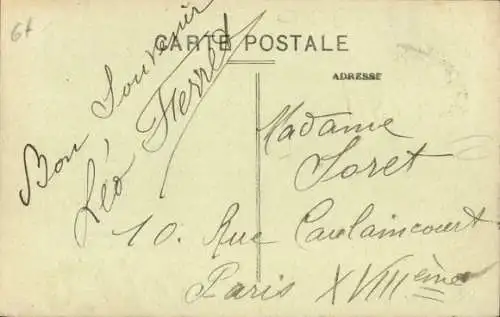 61
CARTE POSTALE
ADRESSE
Bon Souvenir
Léo Ferret
Madame
Soret
10. Rue Caulaincourt
Paris XVIIIème